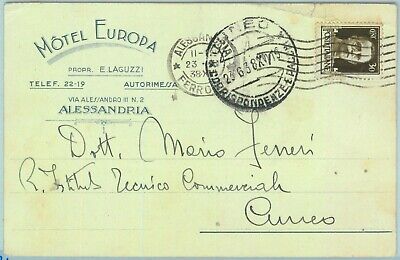 MÔTEL EUROPA
PROPR. E. LAGUZZI
TELEF. 22-19 AUTORIMESSA
VIA ALESSANDRO III N. 2
ALESSANDRIA
ALESSAND
FERRO
CUNEO
CORRISPONDENZE E PACCHI
23.6.38 XVI
30
Dott. Mario Ferreri
R. Istituto Tecnico Commerciale
Cuneo